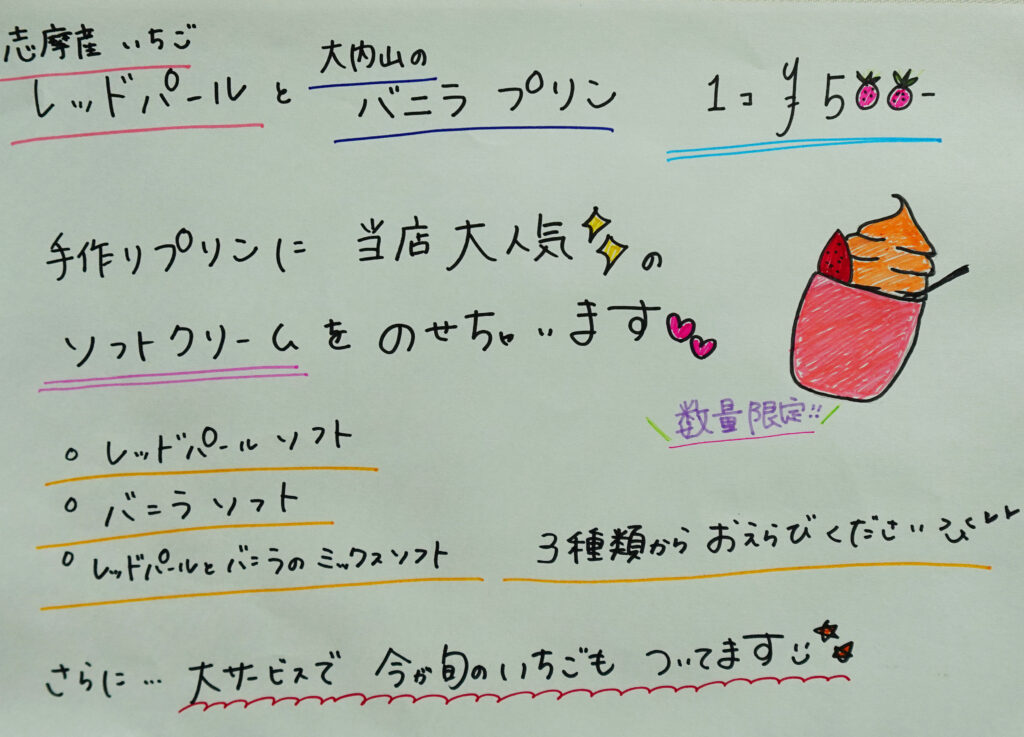 志摩産 いちご
レッドパールと
大内山の
バニラ プリン
1コ ¥500-
手作りプリンに 当店 大人気の
ソフトクリームを のせちゃいます
数量限定!!
○ レッドパール ソフト
○ バニラ ソフト
○ レッドパールと バニラの ミックスソフト
3種類から おえらびください
さらに… 大サービスで 今が旬の いちごも ついてます